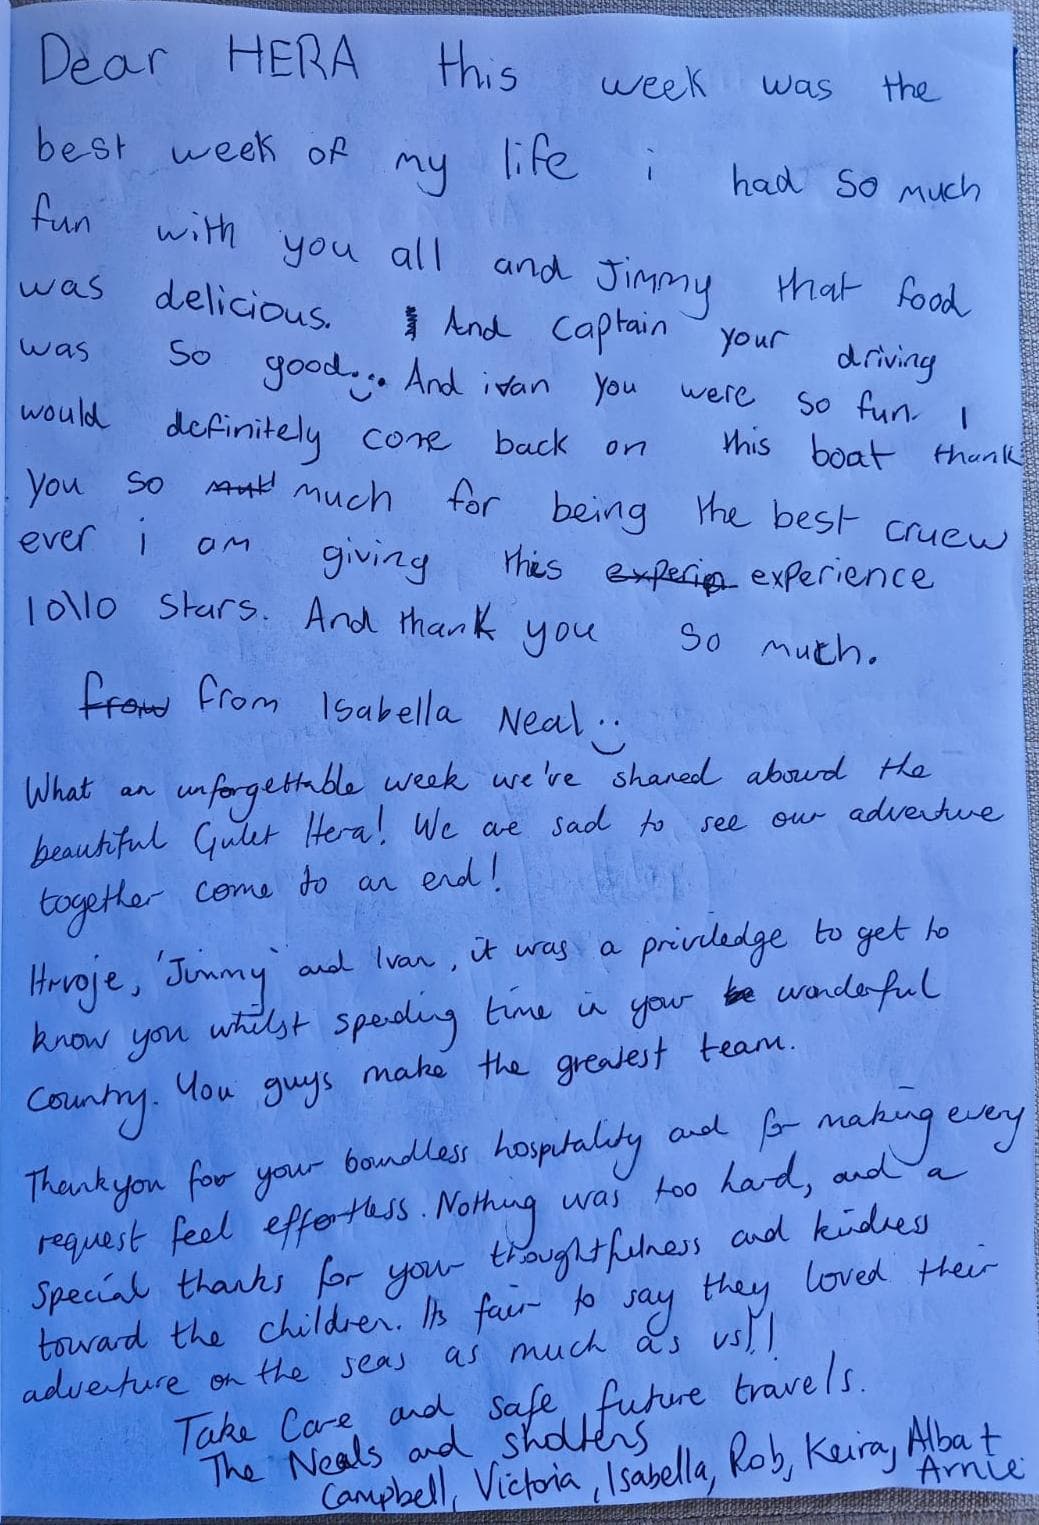 Dear HERA this week was the
best week of my life i had so much
fun with you all and Jimmy that food
was delicious. And captain your driving
was so good... And ivan you were so fun. I
would definitely come back on this boat thank
you so much for being the best cruew
ever i am giving this experience
10\10 stars. And thank you so much.
from Isabella Neal
What an unforgettable week we've shared abourd the
beautiful Gulet Hera! We are sad to see our adventure
together come to an end!
Hrvoje, 'Jimmy' and Ivan, it was a priviledge to get to
know you whilst spending time in your wonderful
country. You guys make the greatest team.
Thankyou for your boundless hospitality and for making every
request feel effortless. Nothing was too hard, and a
special thanks for your thoughtfulness and kindness
toward the children. Its fair to say they loved their
adventure on the seas as much as us!!
Take Care and safe future travels.
The Neals and
Campbell, Victoria, Isabella, Rob, Keira, Alba +
Arnie